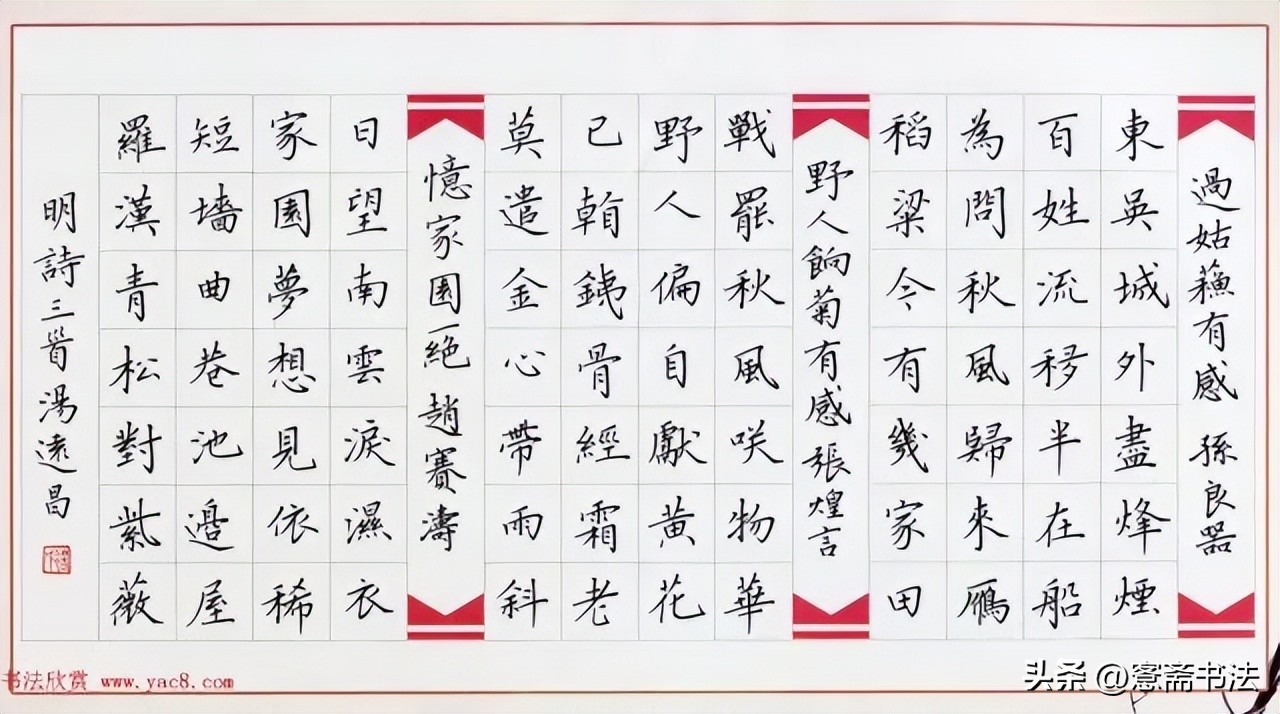 過姑蘓有感 孫良器
東吳城外盡烽煙
百姓流移半在船
為問秋風歸來鴈
稻粱今有幾家田
野人餉菊有感 張煌言
戰罷秋風咲物華
野人偏自獻黃花
已看銕骨經霜老
莫遣金心帶雨斜
憶家園一絕 趙賽濤
日望南雲淚濕衣
家園夢想見依稀
短墻曲巷池邊屋
羅漢青松對紫薇
明詩三首湯遠昌
书法欣赏 www.yac8.com
头条 @窓斋书法